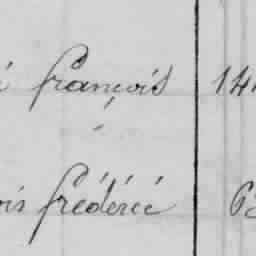 françois 14
frédéric 6